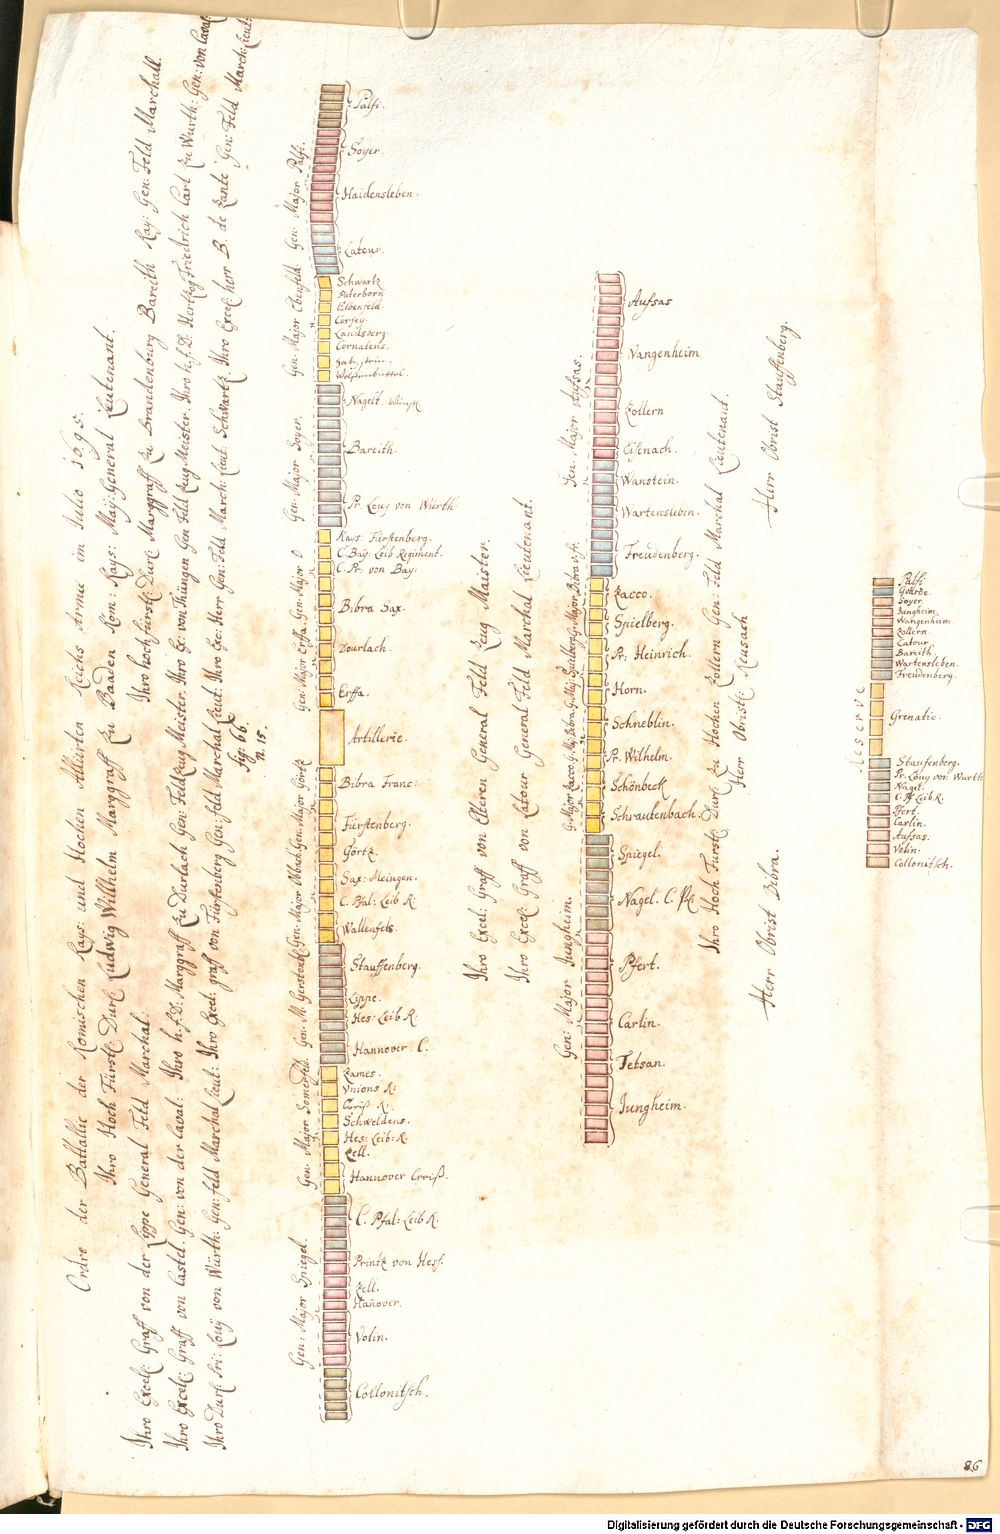 Ordre der Battallie der Römischen Kays: und Hochen Alliirten Reichs Armee im Julio 1695.
Ihro Hoch Fürstl: Durl: Ludwig Willhelm Marggraff zu Baaden Rom: Kays: May: General Leutenant.
Ihro Excel: Graff von der Lippe General Feld Marchal.
Ihro hochfürstl: Durl: Marggraff zu Brandenburg Bareith Kay: Gen: Feld Marchall.
Ihro Excel: Graff von Castel. Gen: von der Caval:
Ihro h.f.D: Marggraff zu Durlach Gen: Feldzeug Meister. Ihro Ex: von Thüngen Gen Feld Zeug Meister. Ihro h.f.D. Hertzog Friedrich Carl zu Würth: Gen: von Caval:
Ihro Durl: Pri: Louy von Würth: Gen: feld Marchal Lieut: Ihro Excel: graf von Fürstenberg Gen: feld Marchal Lieut: Ihro Exc: Herr Gen: Feld March: Lieut: Schwartz Ihro Excel: herr B. de Zante Gen: Feld March: Lieut:
fig: 66.
N. 15.
Gen: Major Palfi.
Gen: Major Elbenfeld
Gen: Major Soyer.
Gen: Major O
Gen: Major Erffa
Gen: Major Görtz
Gen: Major
Gen: M:
Gen: Major Somerfeld
Gen: Major Spiegel.
Palfi.
Soyer
Haidensleben.
Latour.
Schwartz
Puterborn
Elbenfeld
Corfey.
Landsberg
Cornatens.
Wolffenbuttel.
Nagelt
Bareith.
Pr. Louy von Würth:
Kays: Fürstenberg.
C. Bay: Leib Regiment.
C. Pr. von Bay:
Bibra Sax.
Dourlach.
Erffa.
Artillerie.
Bibra Franc:
Fürstenberg.
Görtz.
Sax: Meingen.
C. Pfal: Leib R:
Wallenfels.
Stauffenberg.
Lippe.
Hes: Leib R:
Hannover C.
Zames.
Unions R:
Schweldens.
Hes: Leib: R.
Zell.
Hannover Creiß.
C. Pfal: Leib R.
Printz von Hess.
Zell.
Hañover.
Volin.
Collonitsch.
Ihro Excel: Graff von Elteren General Feld Zeug Maister.
Ihro Excel: Graff von Latour General Feld Marchal Lieutenant.
Gen: Major Aufsas.
Gen: Major Jungheim.
Aufsas
Wangenheim
Zollern
Eisenach.
Wanstein.
Wartensleben.
Freudenberg.
Zacco.
Spielberg.
Pr: Heinrich.
Horn.
Schneblin.
Pr. Wilhelm.
Schönbeck
Schrautenbach.
Spiegel.
Nagel. C. Pfl:
Pfert.
Carlin.
Tetsan.
Jungheim.
Ihro Hoch Furstl: Durl: zu Hochen Zollern Gen: Feld Marchal Lieutenant.
Herr Obristl: Reusach
Herr Obrist Bibra.
Herr Obrist Stauffenberg.
Reserve
Palfi.
Guarde.
Soyer.
Jungheim.
Wangenheim.
Zollern.
Latour.
Bareith.
Wartensleben.
Freudenberg.
Grenatie.
Staufenberg.
Pr. Louy von Wurth
Nagel.
C. Pf. Leib R.
Pfert.
Carlin.
Aufsas.
Volin.
Collonitsch.
86
Digitalisierung gefördert durch die Deutsche Forschungsgemeinschaft - DFG